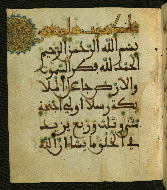 بسم الله الرحمن الرحيم
الحمد لله فطر السموت
والارض جاعل الملا
ئكة رسلا اولي اجنحة
مثنى وثلث وربع يزيد
في الخلق ما يشاء ان الله